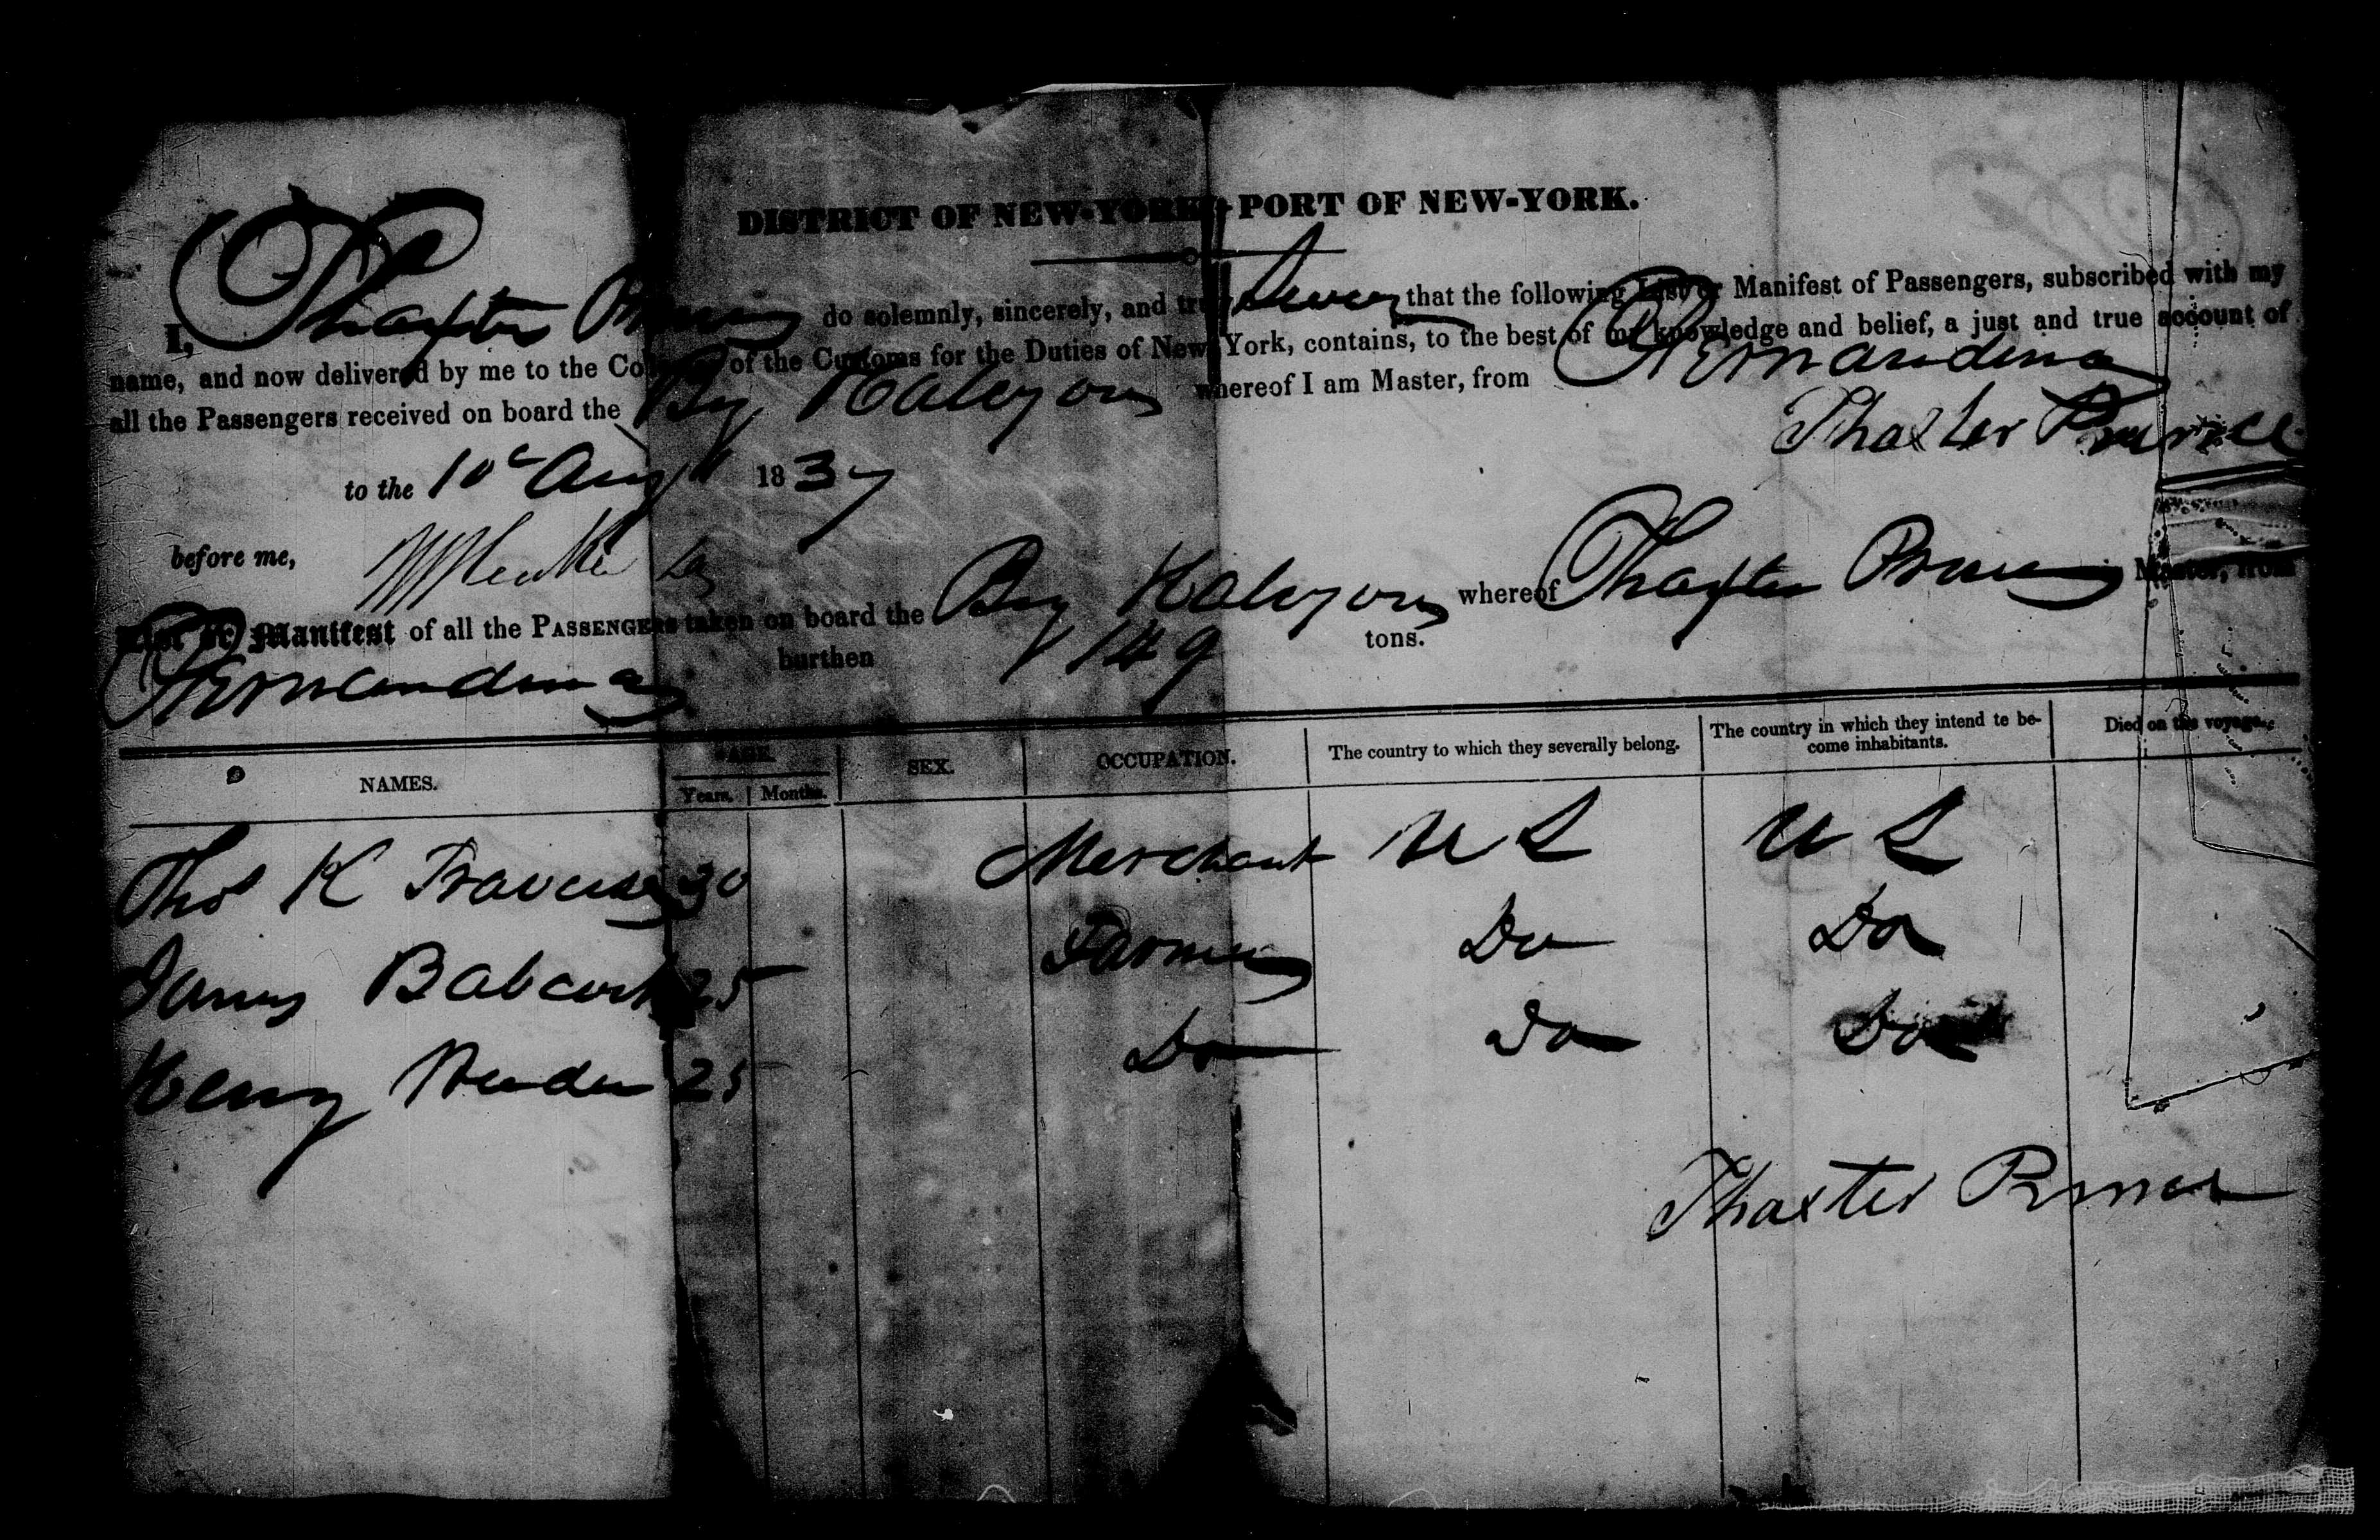 DISTRICT OF NEW-YORK - PORT OF NEW-YORK.
I, Thaxter do solemnly, sincerely, and truly swear that the following List or Manifest of Passengers, subscribed with my
name, and now delivered by me to the Collector of the Customs for the Duties of New York, contains, to the best of my knowledge and belief, a just and true account of
all the Passengers received on board the Brig Halcyon whereof I am Master, from
Thaxter
to the 10 Aug 1837
before me,
List or Manifest of all the PASSENGERS taken on board the Brig Halcyon whereof Thaxter Master, from
burthen 149 tons.
NAMES. AGE. Years. Months. SEX. OCCUPATION. The country to which they severally belong. The country in which they intend to become inhabitants. Died on the voyage.
Thos K 30 Merchant U S U S
James Babcock 25 Farmer Do Do
Henry 25 Do Do Do
Thaxter